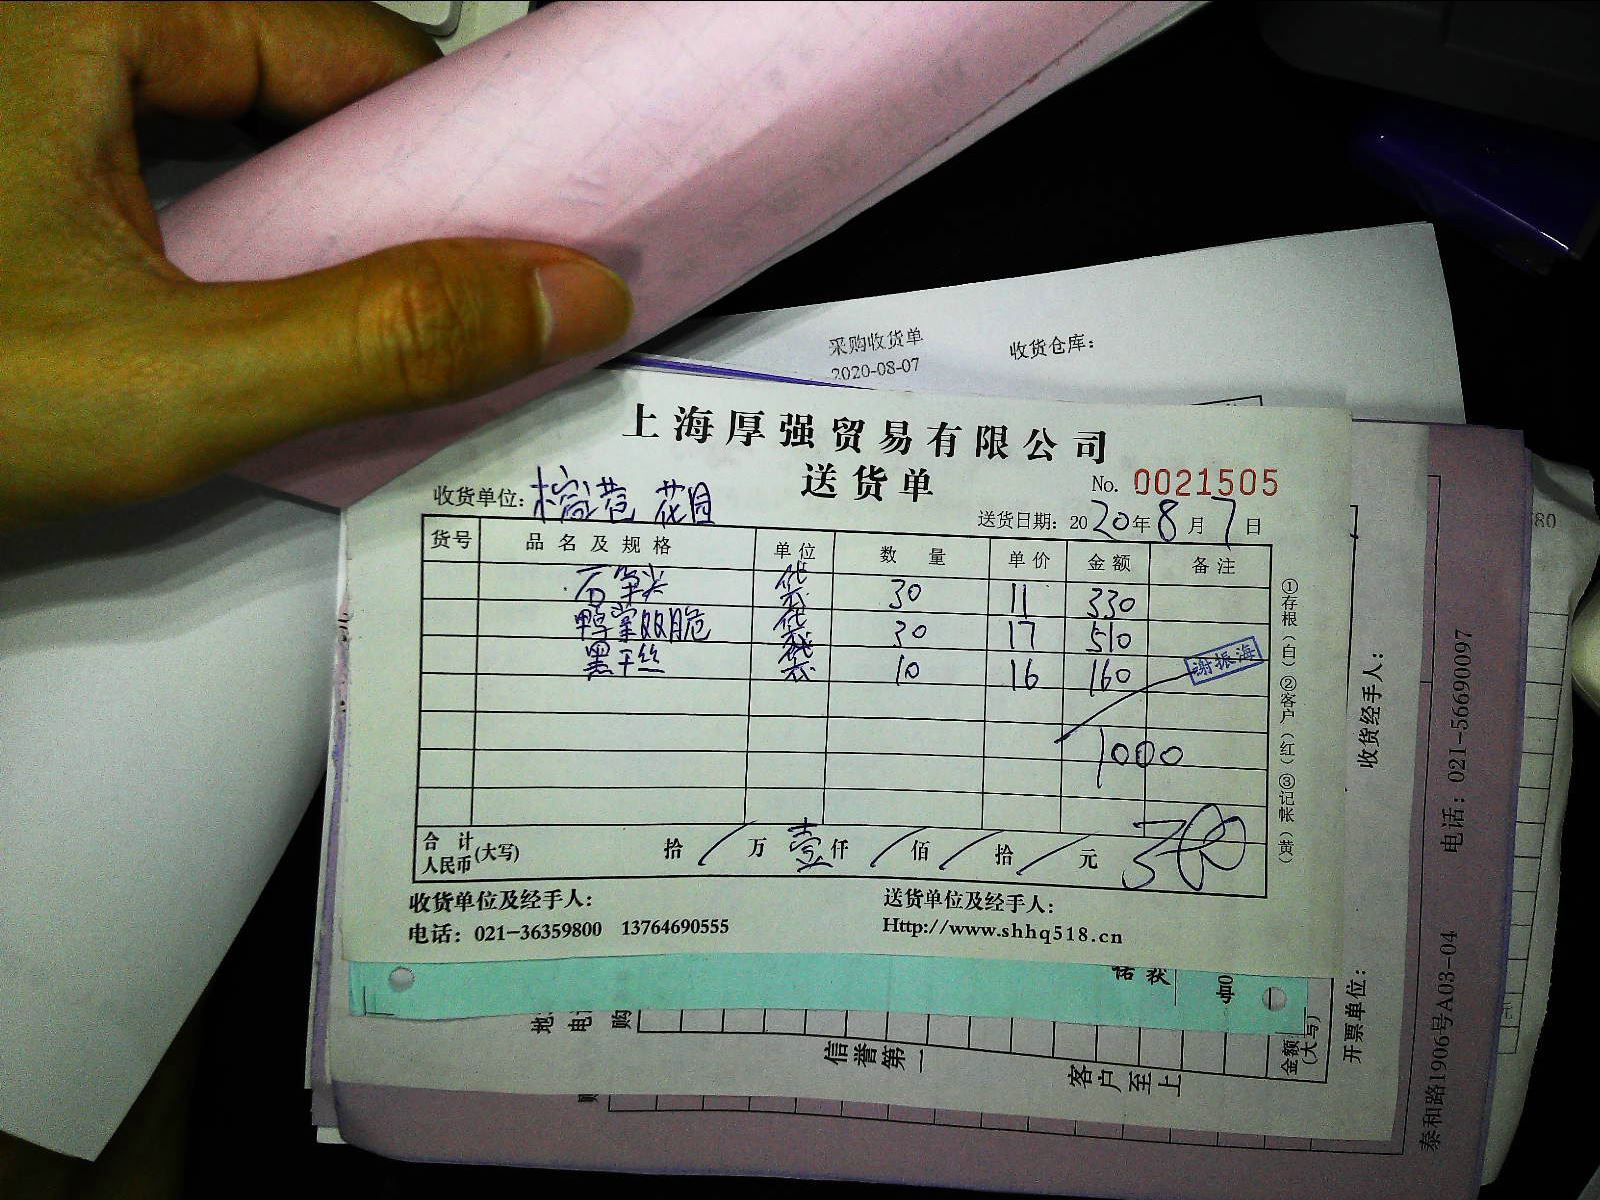 采购收货单
收货仓库：
2020-08-07
上海厚强贸易有限公司
送货单
No. 0021505
收货单位： 花园
送货日期：2020年8月7日
货号 品名及规格 单位 数量 单价 金额 备注
石笋尖 袋 30 11 330
鸭掌双脆 袋 30 17 510
黑干丝 袋 10 16 160
谢振海
1000
合计人民币(大写) 拾/万壹仟/佰/拾/元
收货单位及经手人：
送货单位及经手人：
电话：021-36359800 13764690555
Http://www.shhq518.cn
①存根（白）②客户（红）③记帐（黄）
收货经手人：
电话：021-56690097
泰和路1906号A03-04
开票单位：
金额(大写)
信誉第一
客户至上